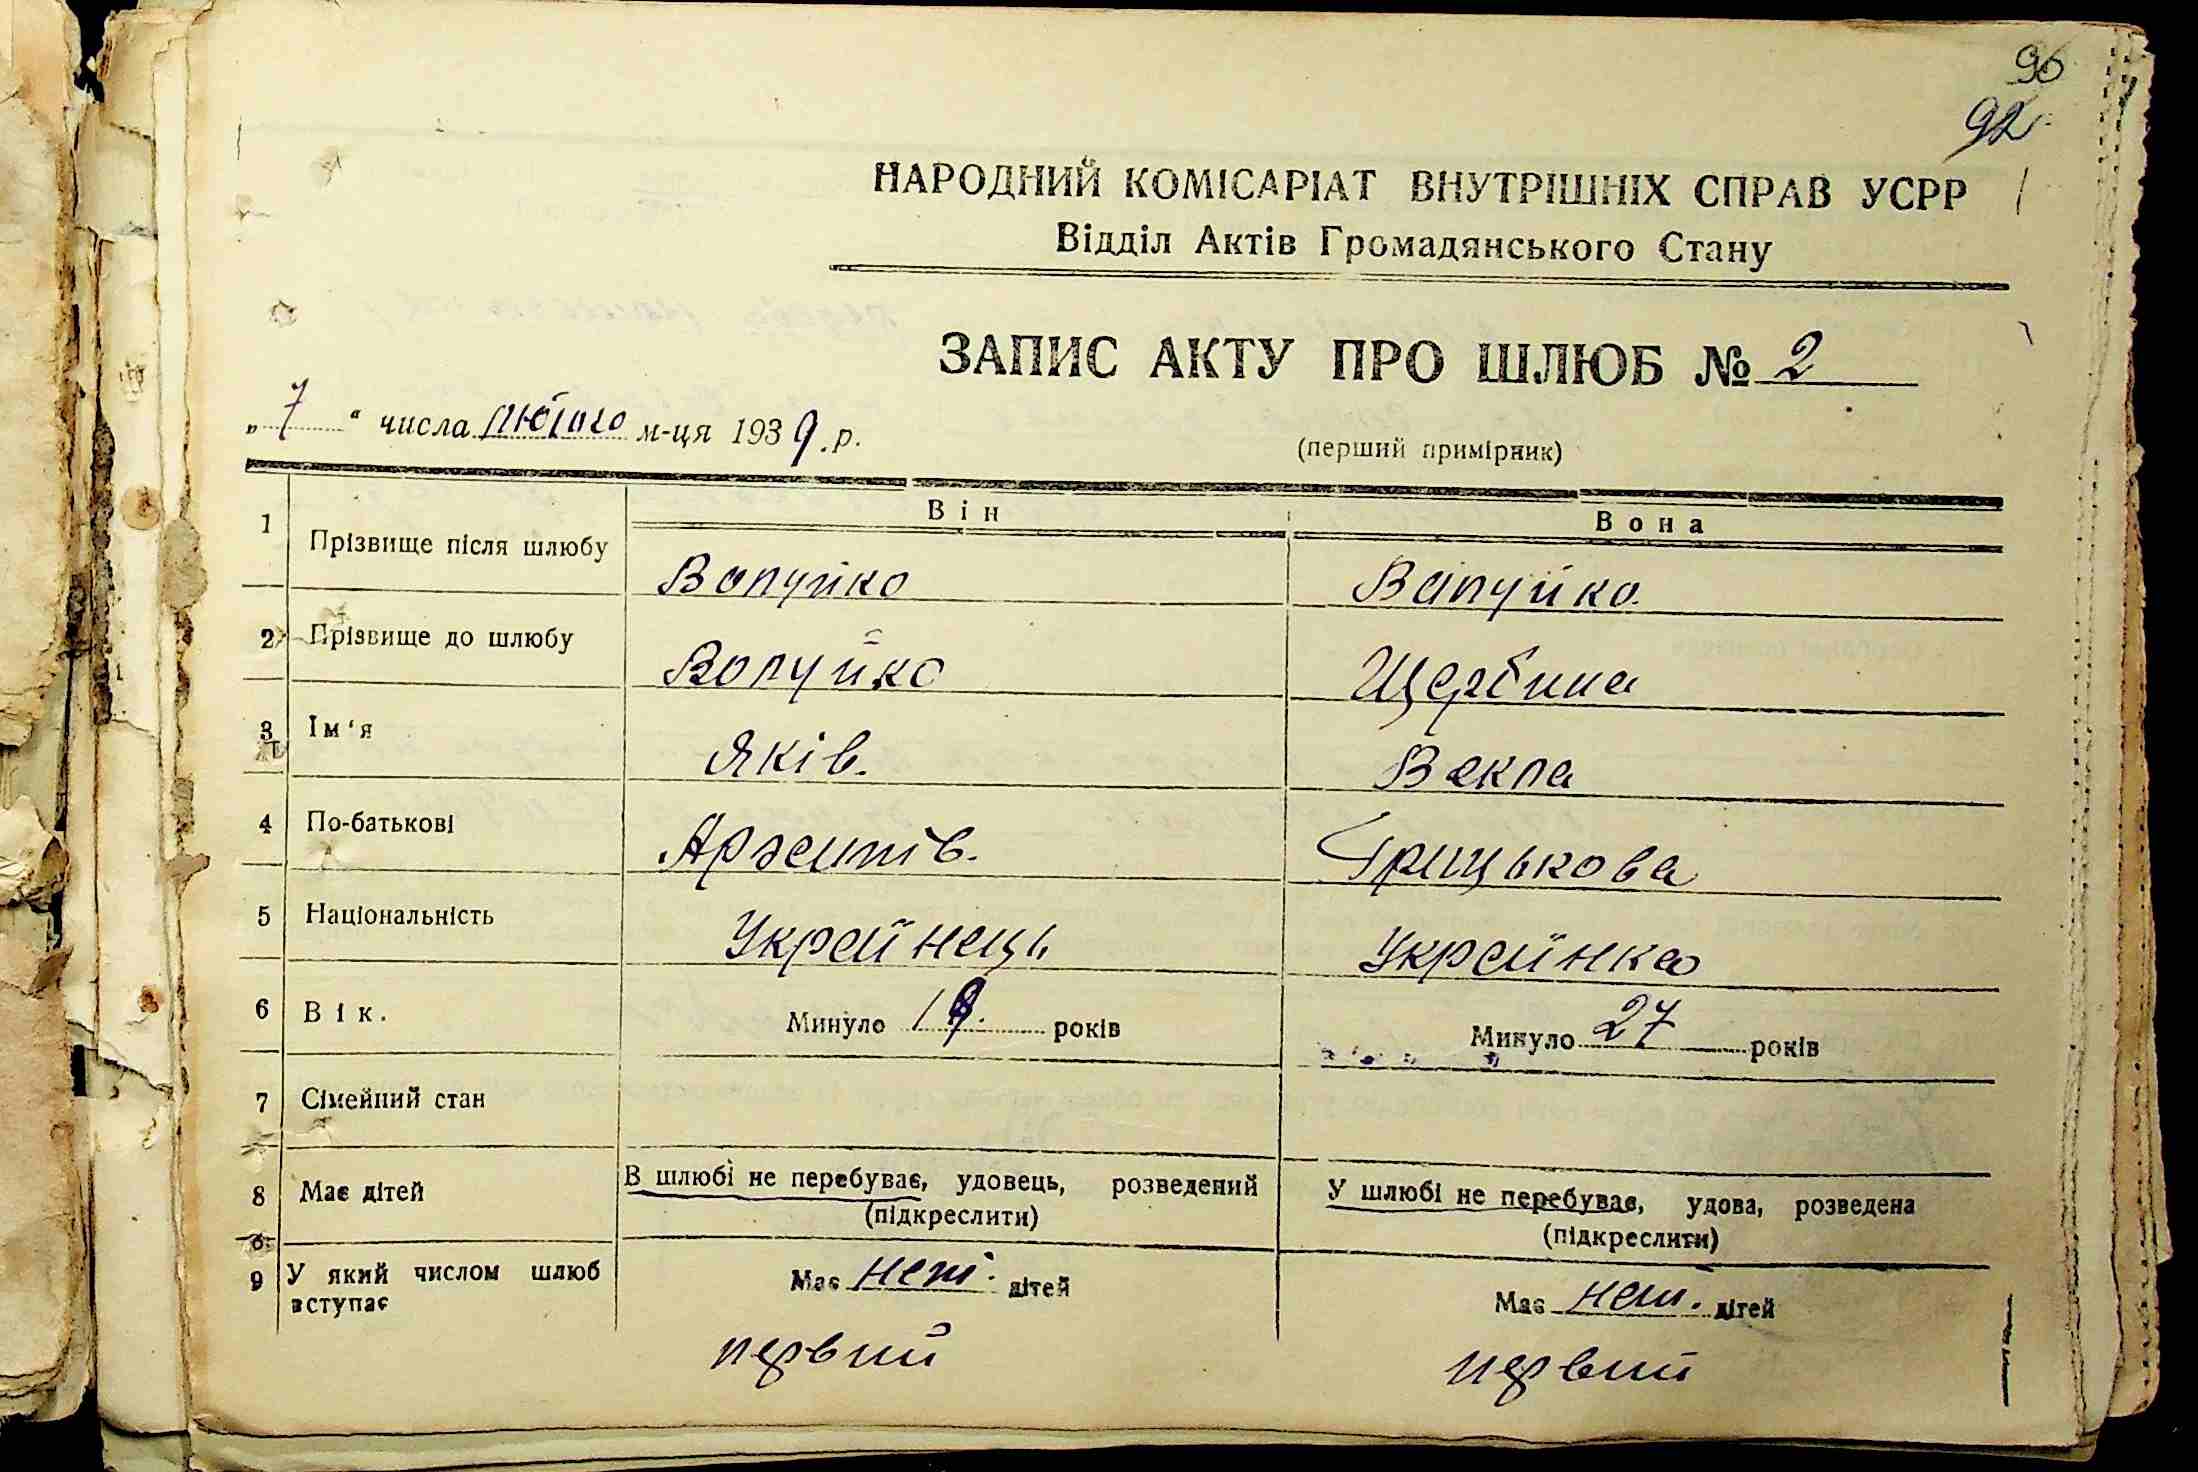 96
92
НАРОДНИЙ КОМІСАРІАТ ВНУТРІШНІХ СПРАВ УСРР
Відділ Актів Громадянського Стану
ЗАПИС АКТУ ПРО ШЛЮБ № 2
„ 7 “ числа лютого м-ця 1939 .р.
(перший примірник)
Він Вона
1 Прізвище після шлюбу Вопуйко Вапуйко.
2 Прізвище до шлюбу Вопуйко Щербина
3 Ім'я Яків. Векла
4 По-батькові Архипів. Грицькова
5 Національність Українець Українка
6 Вік. Минуло 19. років Минуло 27 років
7 Сімейний стан
8 Має дітей В шлюбі не перебуває, удовець, розведений У шлюбі не перебуває, удова, розведена
(підкреслити) (підкреслити)
9 У який числом шлюб вступає Має неті. дітей Має неті. дітей
первий первий